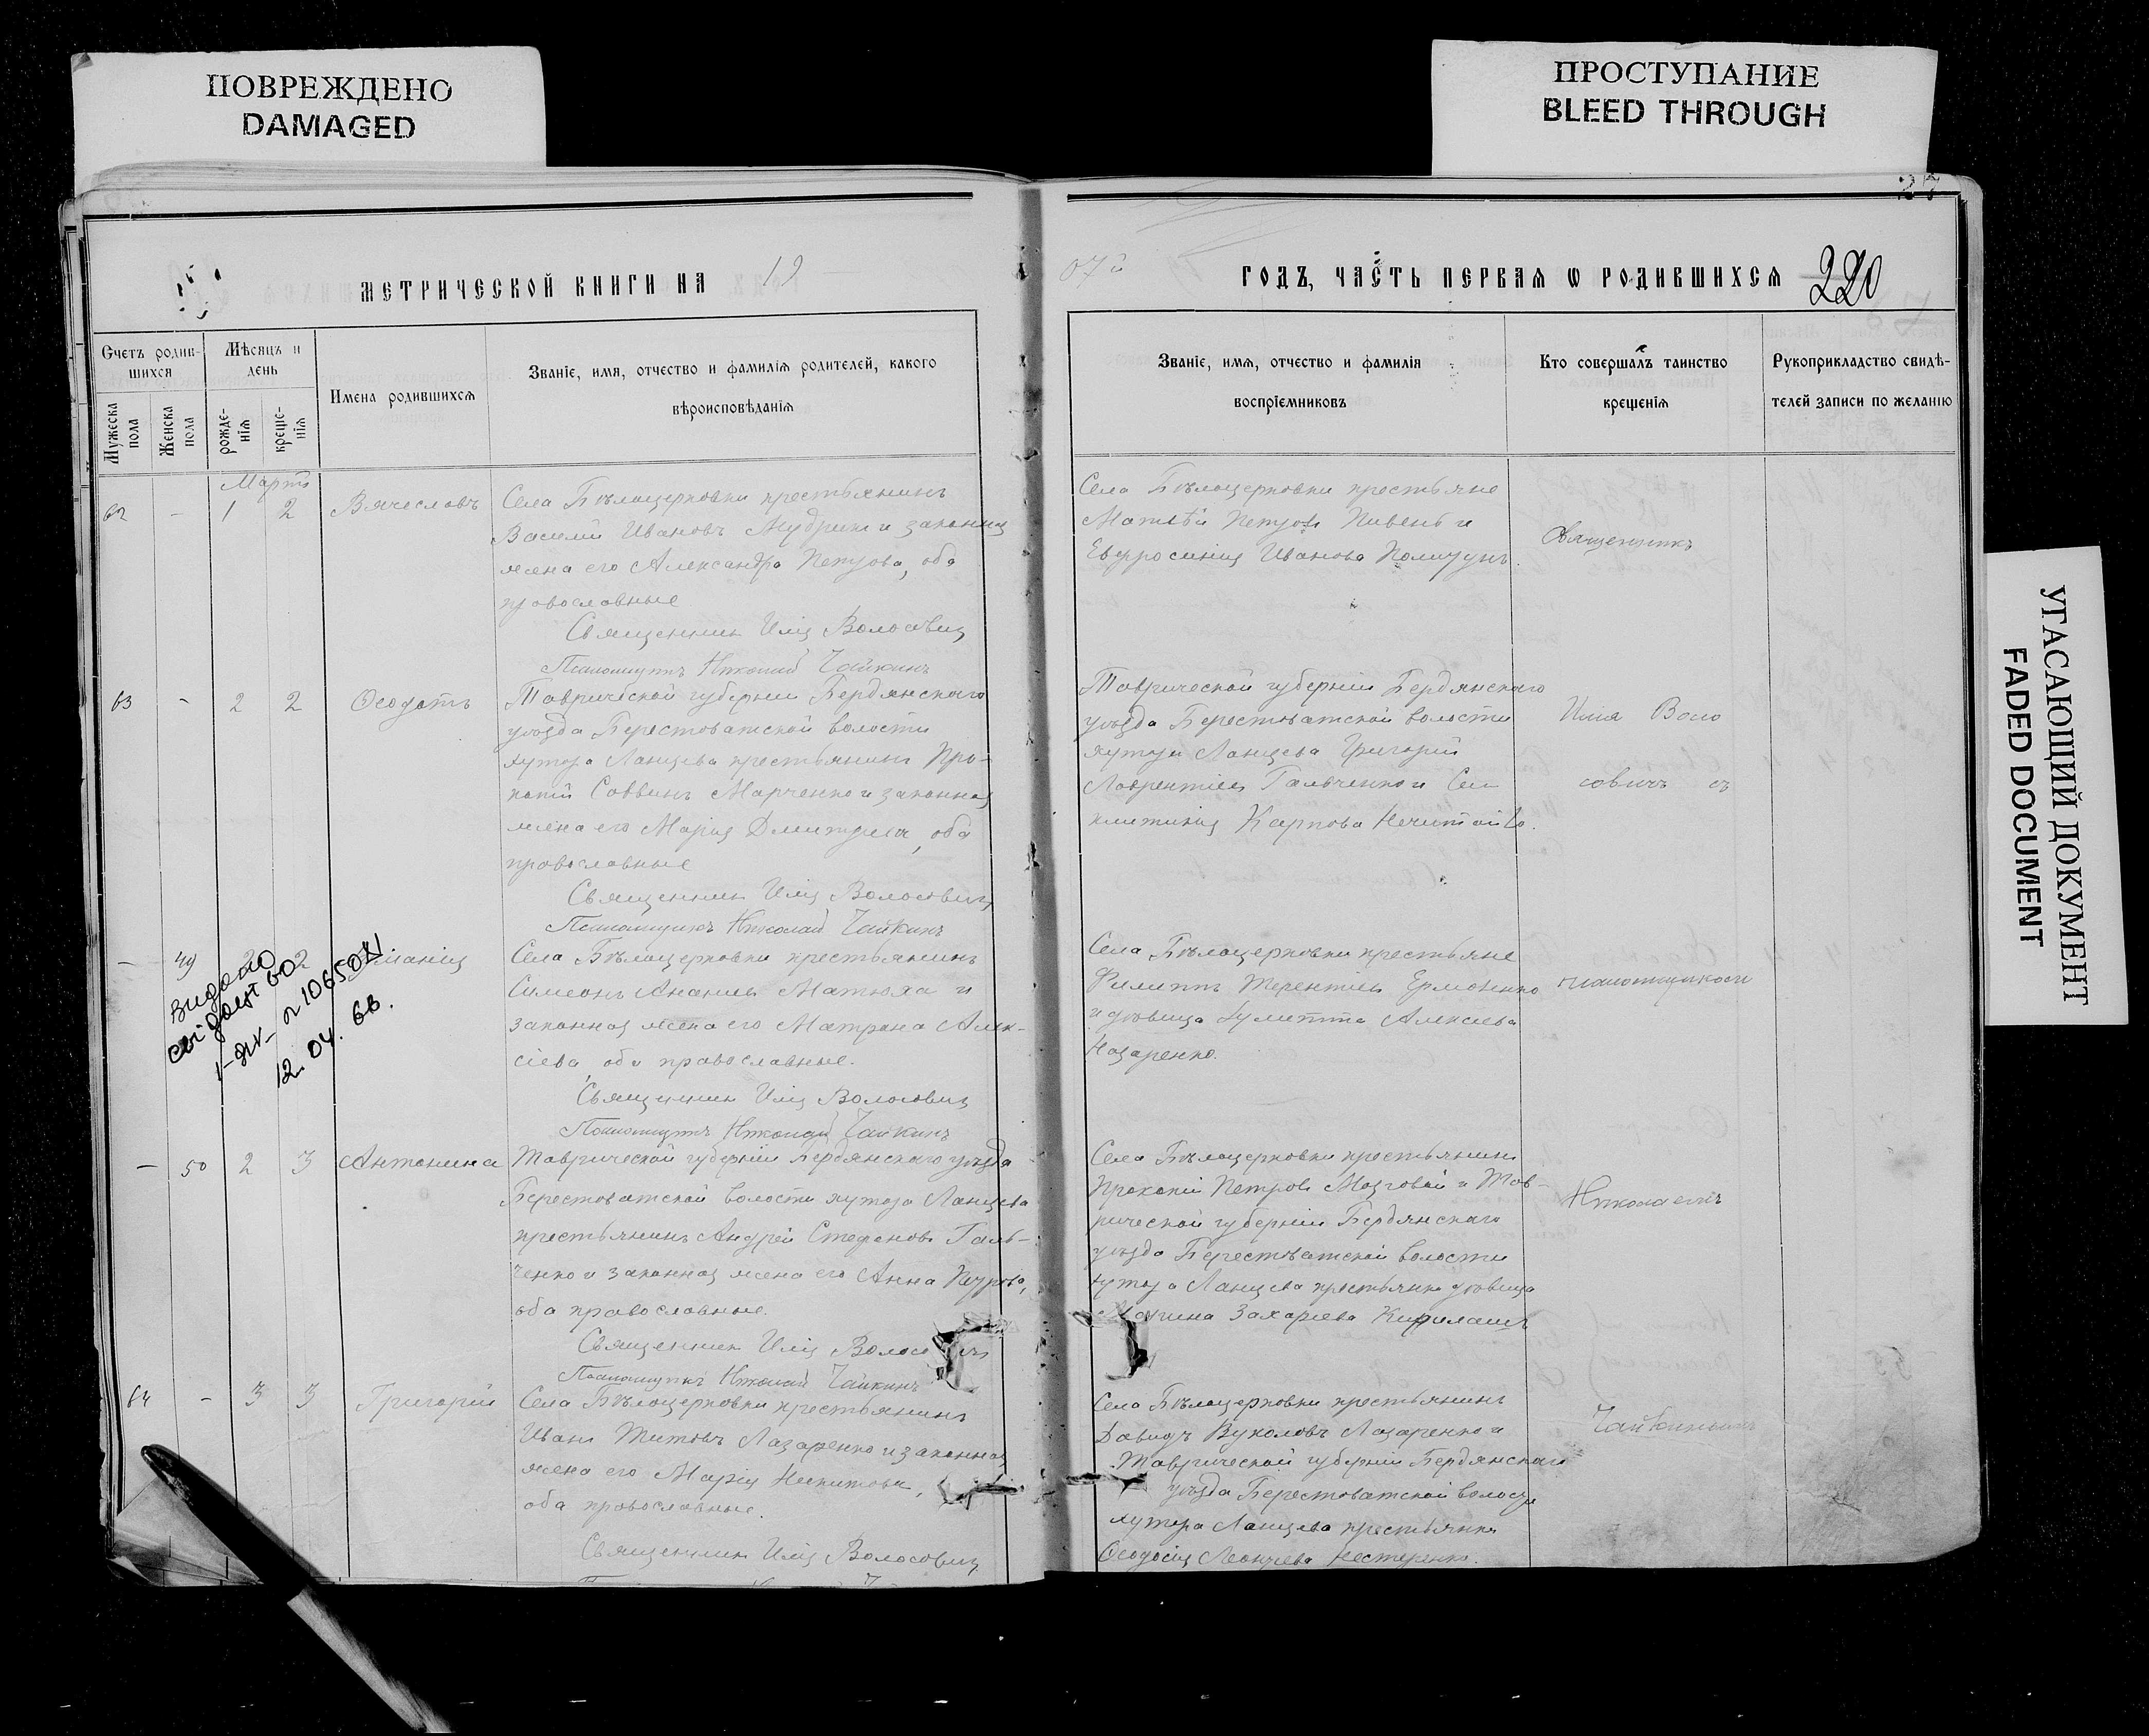 ПОВРЕЖДЕНО
DAMAGED
ПРОСТУПАНИЕ
BLEED THROUGH
УГАСАЮЩИЙ ДОКУМЕНТ
FADED DOCUMENT
27
МЕТРИЧЕСКОЙ КНИГИ НА 19
07й ГОДЪ, ЧАСТЬ ПЕРВАЯ Ѡ РОДИВШИХСЯ 220
Счетъ родив-
шихся
Мужеска
пола
Женска
пола
Мѣсяцъ и
день
рожде-
нія
креще-
нія
Имена родившихся
Званіе, имя, отчество и фамилія родителей, какого
вѣроисповѣданія
Званіе, имя, отчество и фамилія
воспріемниковъ
Кто совершалъ таинство
крещенія
Рукоприкладство свидѣ-
телей записи по желанію
Мартъ
62 - 1 2 Вячеславъ
Села Бѣлоцерковки крестьянинъ
Василій Ивановъ Мудрикъ и законная
жена его Александра Петрова, оба
православные
Священник Илія Волосович
Псаломщикъ Николай Чайкинъ
Села Бѣлоцерковки крестьяне
Матѳій Петров Пивень и
Евфросинія Иванова
63 - 2 2 Ѳеодотъ
Таврической губерніи Бердянскаго
уѣзда Берестоватской волости
хутора Ланцева крестьянинъ Про-
копій Саввинъ Марченко и законная
жена его Марія Дмитріева, оба
православные
Священник Илія Волосович
Псаломщикъ Николай Чайкинъ
Таврической губерніи Бердянскаго
уѣзда Берестоватской волости
хутора Ланцева Григорій
Лаврентіев Гальченко и
Карпова Нечитайло.
- 49 2 2
видано
свідоцт во
12. 04. 66.
Села Бѣлоцерковки крестьянинъ
Симеонъ Ананіев Матюха и
законная жена его Матрона Алек-
сіева, оба православные.
Священник Илія Волосович
Псаломщикъ Николай Чайкинъ
Села Бѣлоцерковки крестьяне
Филиппъ Терентіев Ермоленко
и дѣвица Алексіева
Назаренко.
- 50 2 3 Антонина
Таврической губерніи Бердянскаго уѣзда
Берестоватской волости хутора Ланцева
крестьянинъ Андрей Стефанов Галь-
ченко и законная жена его Анна Петрова,
оба православные.
Священник Илія
Псаломщикъ Николай Чайкинъ
Села Бѣлоцерковки крестьянин
Прокопій Петров Мозговой и Тав-
рической губерніи Бердянскаго
уѣзда Берестоватской волости
хутора Ланцева крестьянка дѣвица
Захаріева
64 - 3 3 Григорій
Села Бѣлоцерковки крестьянинъ
Иван Титовъ Лазаренко и законная
жена его Марія Никитова,
оба православные.
Священник Илія Волосович
Села Бѣлоцерковки крестьянинъ
Давидъ Вуколовъ Лазаренко и
Таврической губерніи Бердянскаго
уѣзда Берестоватской волости
хутора Ланцева крестьянка
Ѳеодосія Нестеренко.
Священникъ
Илія Воло
совичъ съ
псаломщикомъ
Николаемъ
Чайкинымъ